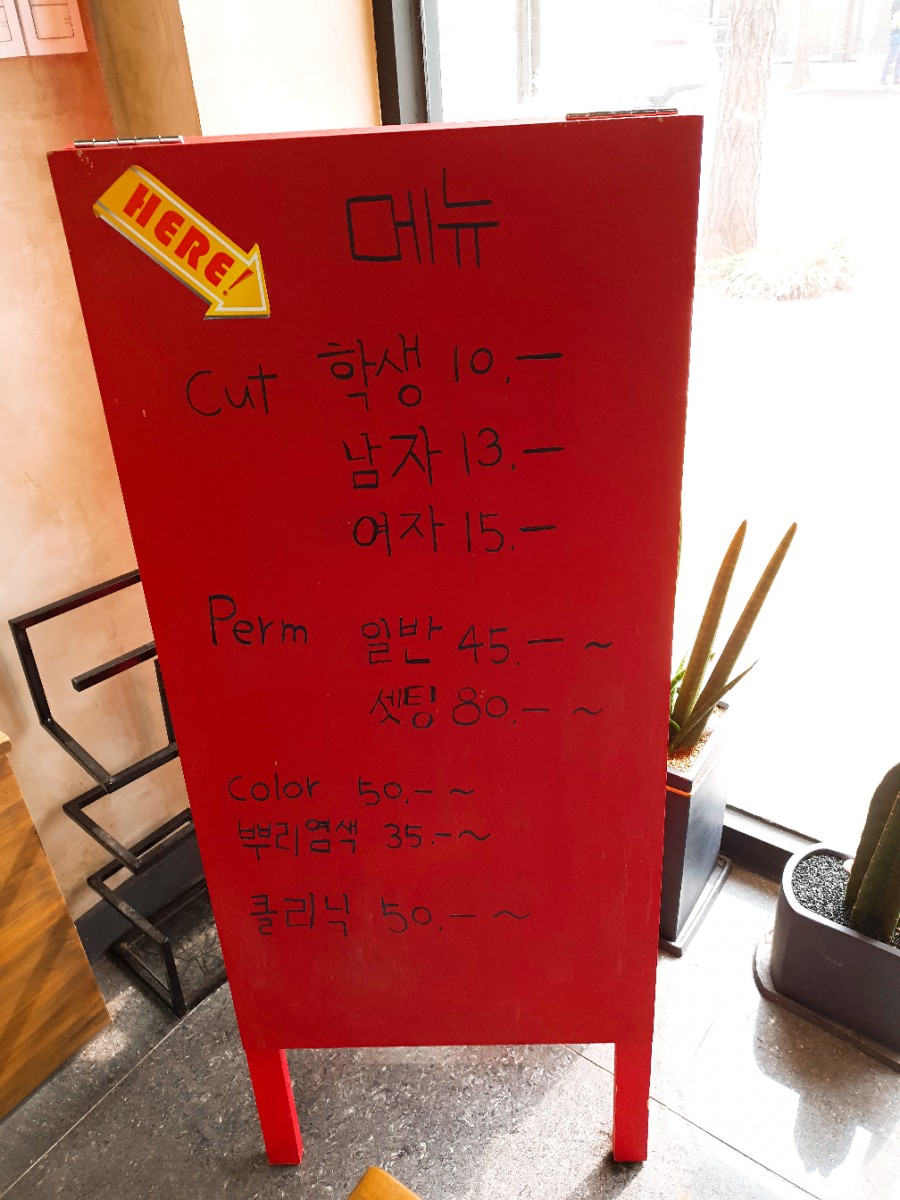 HERE!
메뉴
Cut 학생 10.—
남자 13.—
여자 15.—
Perm 일반 45.— ~
셋팅 80.— ~
Color 50.— ~
뿌리염색 35.— ~
클리닉 50.— ~